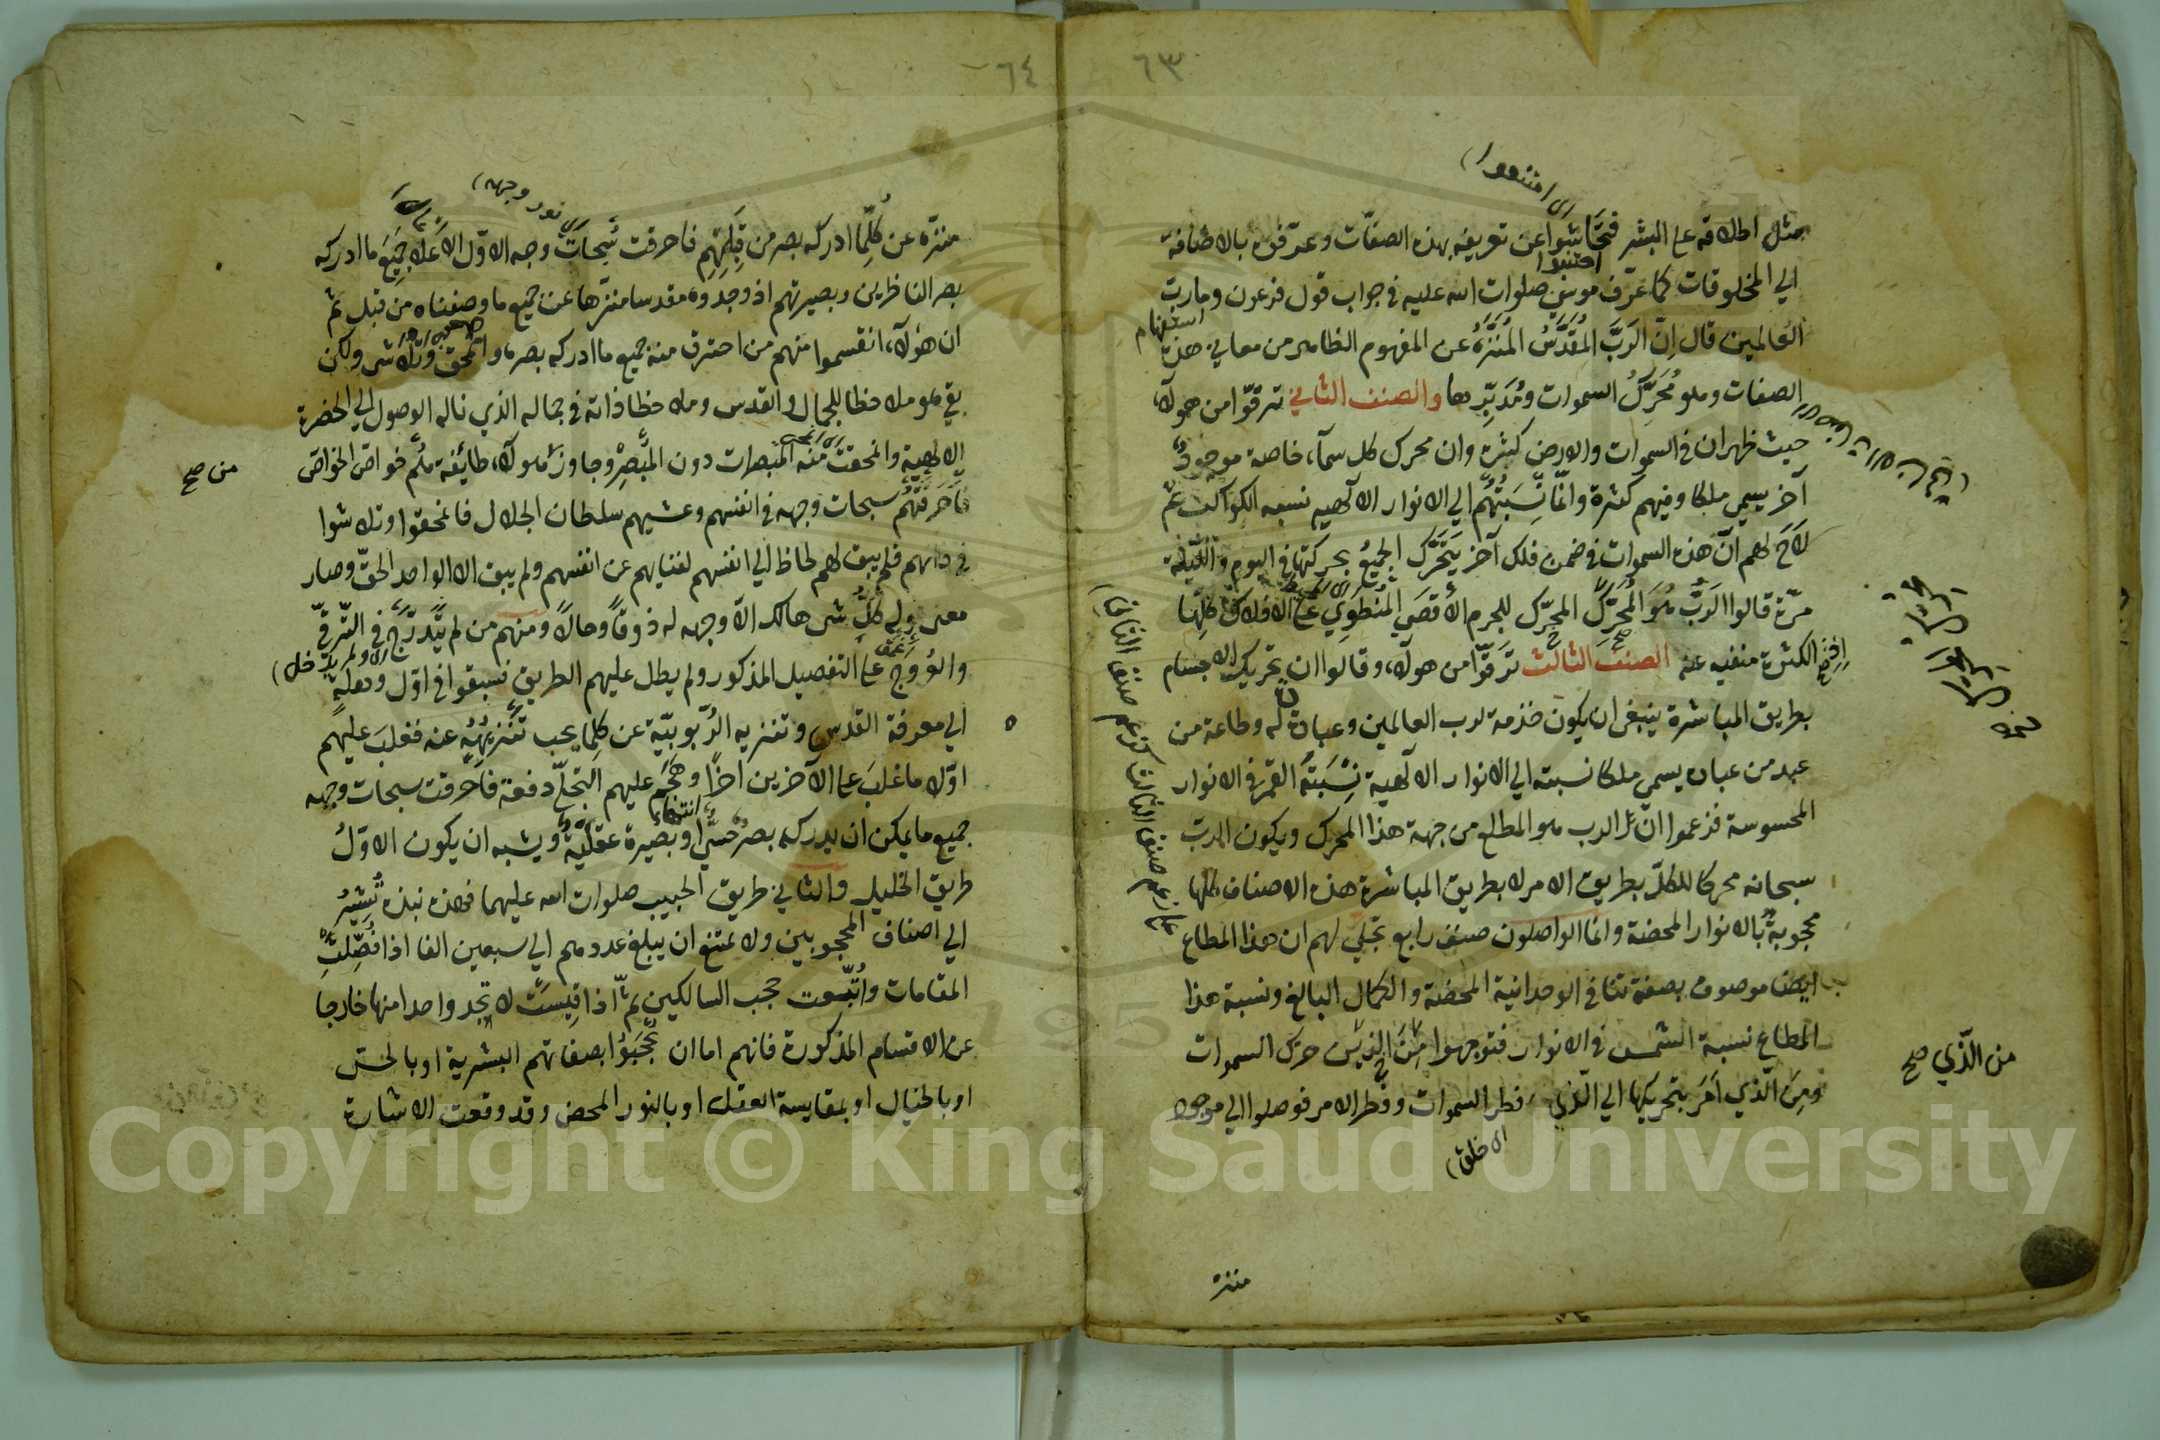 ٦٣
اى امتنعوا)
مثل اطلاقه على البشر فتحاشوا عن تعريفه بهذه الصفات وعرّفوه بالاضافة
اجتنبوا
الى المخلوقات كما عرّف موسى صلوات الله عليه في جواب قول فرعون وما ربّ
استفهام
العالمين قال اِنّ الرَبَّ المُقَدَّسُ المُنَزَّهُ عن المفهوم الظاهر من معاني هذه
الصفات وهو مُحَرِّكُ السموات ومُدَبِّرها والصنف الثاني ترقّوا من هولآء
حيث ظهر ان في السموات والارض كثرة وان محرك كل سمآء خاصة موجودٌ
آخر يسمي ملكا وفيهم كثرة وانّما نِسبَتُهُم الي الانوار الالهيه نسبه الكواكب ثمّ
لاحَ لهم انّ هذه السموات في ضمن فلك آخر يَتَحَرَّك الجميعُ بحركتها في اليوم والليلة
مرّة قالوا الرَبُّ هُوَ المُحَرِّكُ المحرّك للجرم الأَقصَي المُنطَوِي على الافلاك كلِّها
اذ الكثرة منفيه عنه الصنف الثالث ترقّوا من هولآء وقالوا ان تحريك الاجسام
بطريق المباشرة ينبغى ان يكون خدمة لرب العالمين وعبادة له وطاعة من
عبد من عباده يسمى ملكا نسبته الي الانوار الآلهية نِسبَتهُ القمر في الانوار
المحسوسة فزعموا انّ الرب هو المطاع من جهة هذا المحرك ويكون الرب
سبحانه محركا للكلّ بطريق الامر لا بطريق المباشرة هذه الاصناف كلها
محجوبةٌ بالانوار المحضة وانما الواصلون صنف رابع تجلّي لهم ان هذا المطاع
ايضا موصوف بصفة تنافي الوحدانية المحضة والكمال البالغ ونسبة هذا
المطاع نسبة الشمس في الانوار فتوجهوا مِنَ الذي حرك السموات
ومِنَ الّذي اَمَرَ بتحريكها الي الّذي فطر السموات وفطر الامر فوصلوا الي موجود
اى خلق)
من الّذي صح
منزه
٦٤
اى نور وجهه)
منزّه عن كُلِّما ادركه بصر من قِبَلِهِم فاحرقت سُبحاتُ وجه الاوّل الاَعلا جَميعَ ما ادركه
بصر الناظرين وبصيرتهم اذ وجدوه مقدسا منزّها عن جميع ما وصفناه من قبل ثم
ان هولآء انقسموا منهم من احترق منه جميع ما ادركه بصره وانمحق وتلاشى ولكن
بقي هو ملاحظا للجمال والقدس وملاحظا ذاته في جماله الذي ناله الوصول الي الحضرة
الالهية وانمحقت مّنه المبصرات دون المُبصِر وجاوز هولآء طايفة هُم خواصّ الخواصّ
من صح
فاَحرَقَتهُم سبحات وجهه في انفسهم وغشيهم سلطان الجلال فانمحقوا وتلاشوا
في ذاتهم فلم يبق لهم لحاظ الي انفسهم لفنايهم عن انفسهم ولم يبق الا الواحد الحقّ وصار
معنى قوله كلُّ شى هالك الّا وجهه له ذوقاً وحالاً ومنهم من لم يَتَدرَّج في التّرقّي
والعُروج على التفصيل المذكور ولم يطل عليهم الطريق فسبقوا في اوّل وهلة
الي معرفة القدس وتنزيه الرّبوبيّة عن كلّما يجب تَنزيهُه عنه فغلبَ عليهم
اوّلا ما غلبَ على الآخرين آخرًا وهَجَمَ عليهم التجلّي دفعة فاحرقت سبحات وجهه
جميع ما يمكن ان يدركه بصرٌ حسّيٌّ او بصيرة عقليّةٌ ويشبه ان يكون الاوّلُ
طريق الخليل والثاني طريق الحبيب صلوات الله عليهما فهذه نبذة تُشيرُ
الي اصناف المحجوبين ولا يمتنع ان يبلغ عددهم الي سبعين الفا اذا فُصِّلَت
المقامات وتُتُبِّعت حجب السالكين ثمّ اذا قِيسَتْ لا تجد واحدا منها خارجا
عن الاقسام المذكورة فانهم اما ان حُجَبُوا بصفاتهم البشرية او بالحسّ
او بالخيال او بمقايسة العقل او بالنور المحض وقد وقعت الاشارة
Copyright © King Saud University
1957